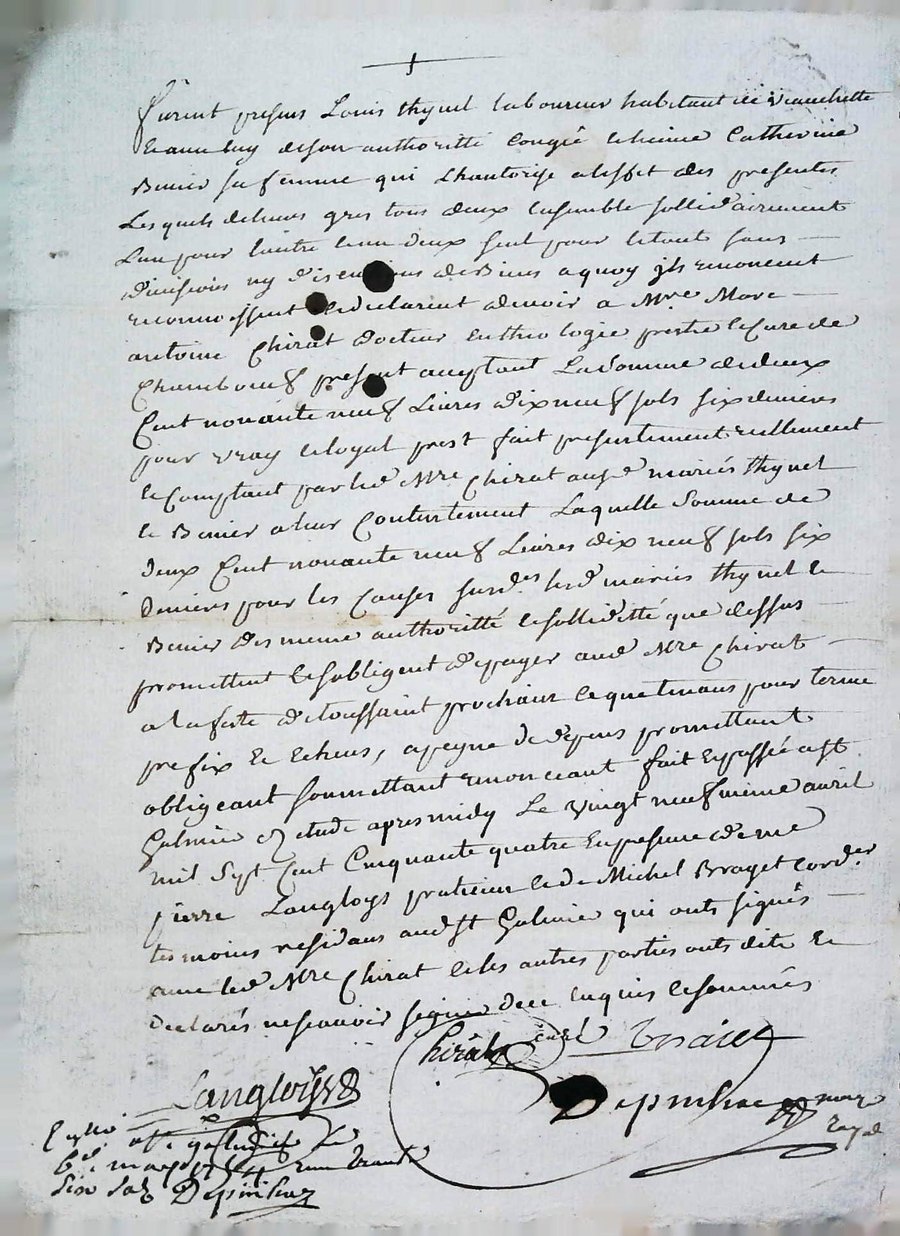 furent presens Louis thynel laboureur habitant de
de son authoritté congié et licence Catherine
Benier sa femme qui l'hautorise a l'effet des presentes
Lesquels de leurs grés tous deux ensemble sollidairement
l'un pour l'autre l'un deux seul pour le tout sans
divisions ny discutions de biens a quoy ils renoncent
reconnoissent et declarent devoir a Mre Marc
antoine Chirat docteur en theologie prestre et Curé de
Chambœuf present acceptant La Somme de deux
Cent nonante neuf Livres dix neuf sols six deniers
pour vray et loyal prest fait presentement reellement
et Comptant par led Mre Chirat aus d mariés thynel
et Benier a leur Contentement Laquelle Somme de
deux Cent nonante neuf Livres dix neuf sols six
deniers pour les Causes surdes lesd mariés thynel et
Benier de meme authoritté et solliditté que dessus
promettent et s'obligent de payer aud Mre Chirat
a la feste de toussaint prochain pour terme
prefix et Echeus, a peyne de depens promettant
obligeant soumettant renonceant fait et passé a st
Galmier etude apres midy Le vingt neufvieme avril
mil Sept Cent Cinquante quatre En presence de me
pierre Langloys praticien et de Michel Braget cord.er
temoins residans aud st Galmier qui onts signés
avec led Mre Chirat et les autres parties onts dits et
declarés ne scavoir signer de ce enquis et sommés
Chirat curé
Langloys
royal
six sols